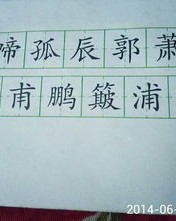 啼孤辰郭萧
甫鹏簸浦
2014-06-